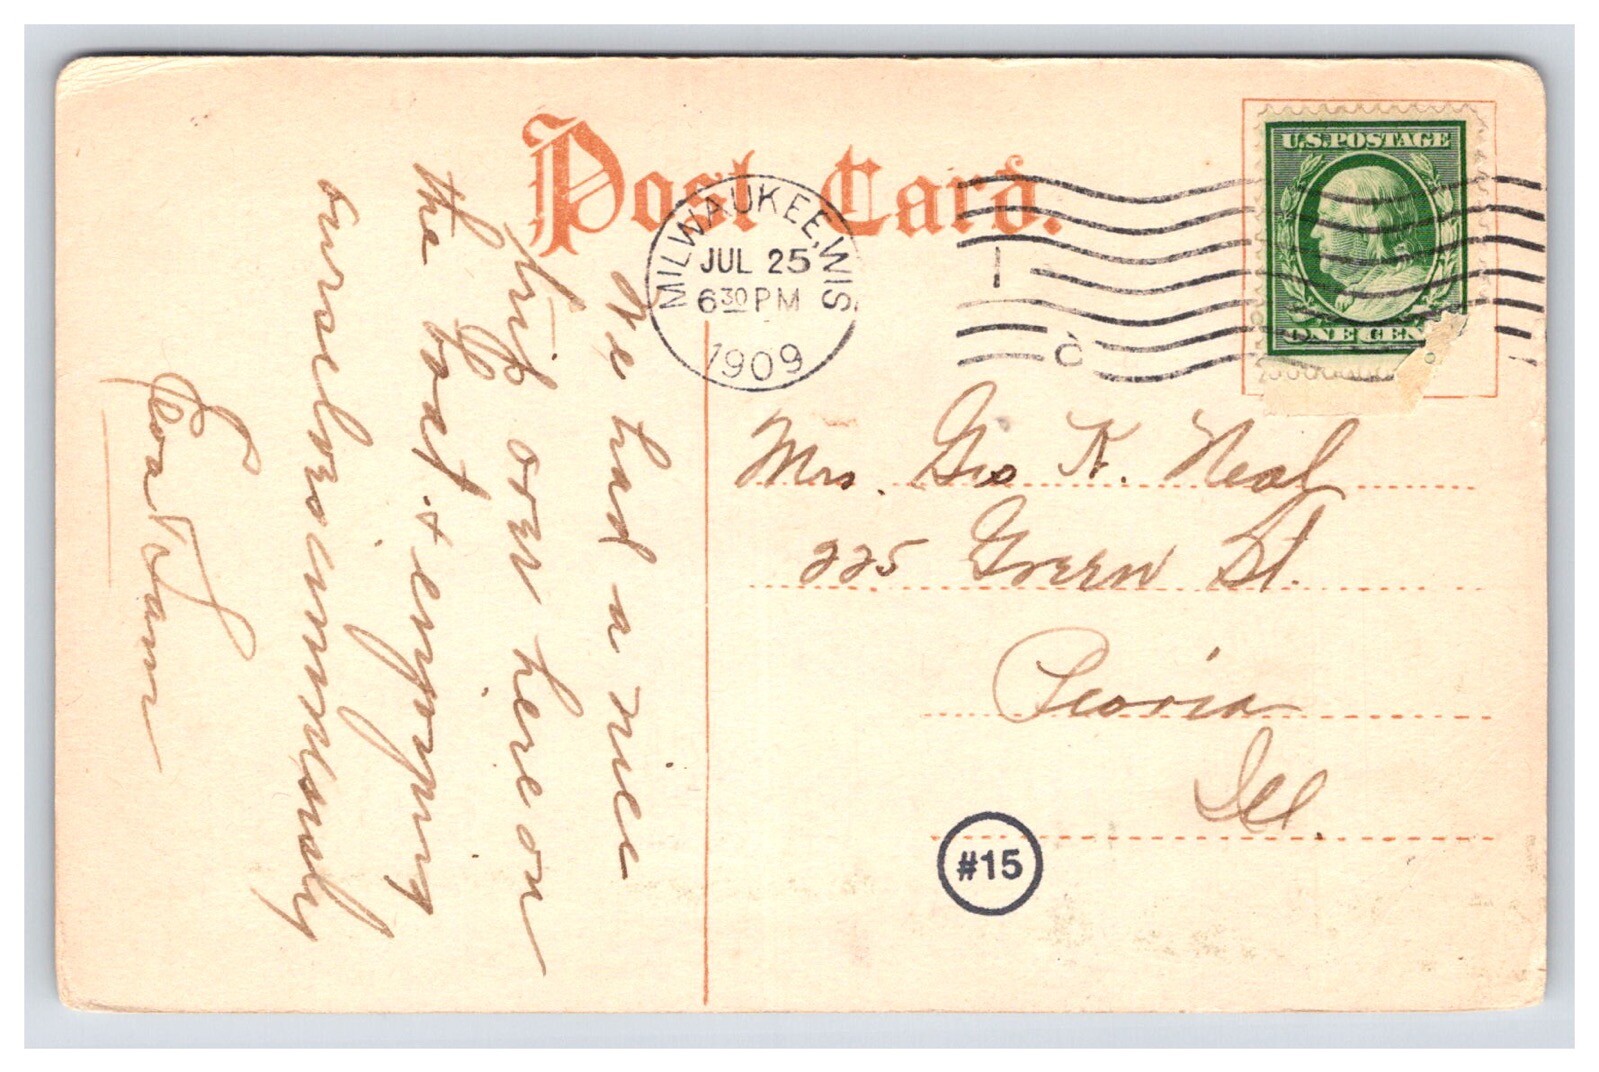 Post Card.
MILWAUKEE, WIS.
JUL 25
6 30 PM
1909
U.S. POSTAGE
ONE CEN
We had a nice
trip over here on
the boat & enjoying
ourselves immensely
and Sam
Mrs. Geo K. Neal
225 Green St.
Peoria
Ill.
#15